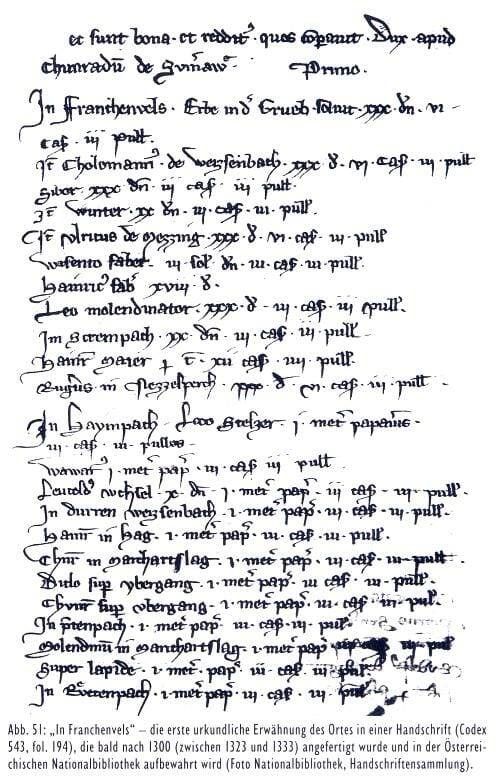 et sunt bona et reddit9 quos Dux apud
Chunradū de
Primo.
In Franchenvels. Erbe in d' Grueb solvit xxx dn̄ vi
cas. iii pull.
It̄ Cholomann9 de Weyssenbach. xxx d. vi. cas. iii pull
Sibot xxx dn̄ iii cas. iii pull.
It̄ Winter. xx dn̄. iii. cas. iii. pull.
It̄ Ulricus de Mezzing. xxx d. vi. cas. iii. pull
faber. iii sol. dn̄. iii. cas. iii. pull.
Hainric9 fab' xviii d.
Leo molendinator. xxx. d. iii. cas. iii pull.
Im Strempach. xx. dn̄. iii. cas. iii. pull
Hainr̄ Maier xii cas. iiii. pull.
in xxx. d. vi. cas. iii. pull
In Haympach. Leo Stelzer. i. met' papaūis.
iii. cas. iii. pullos
i. met' pap'. iii. cas. iii pull.
Leutold9 Wechsel x. dn̄. i. met' pap'. iii cas. iii. pull.
In durren Weyssenbach. i. met' pap'. iii. cas. iii. pull.
Hainr̄ in Hag. i. met' pap'. iii. cas. iii. pull.
Chunr̄ in Marchartslag. i. met' pap'. iii. cas. iii. pull
sup' ubergang. i. met' pap'. iii. cas. iii. pull.
Chunr̄ sup' ubergang. i. met' pap'. iii. cas. iii. pul.
In i. met' pap'. iii. cas. iii. pull
in Marchartslag. i. met' pap'
Super lapidē. i. met' pap'. iii. cas. iii. pull
In i. met' pap'. iii. cas. iii. pull
Abb. 51: „In Franchenvels“ – die erste urkundliche Erwähnung des Ortes in einer Handschrift (Codex
543, fol. 194), die bald nach 1300 (zwischen 1323 und 1333) angefertigt wurde und in der Österrei-
chischen Nationalbibliothek aufbewahrt wird (Foto Nationalbibliothek, Handschriftensammlung).